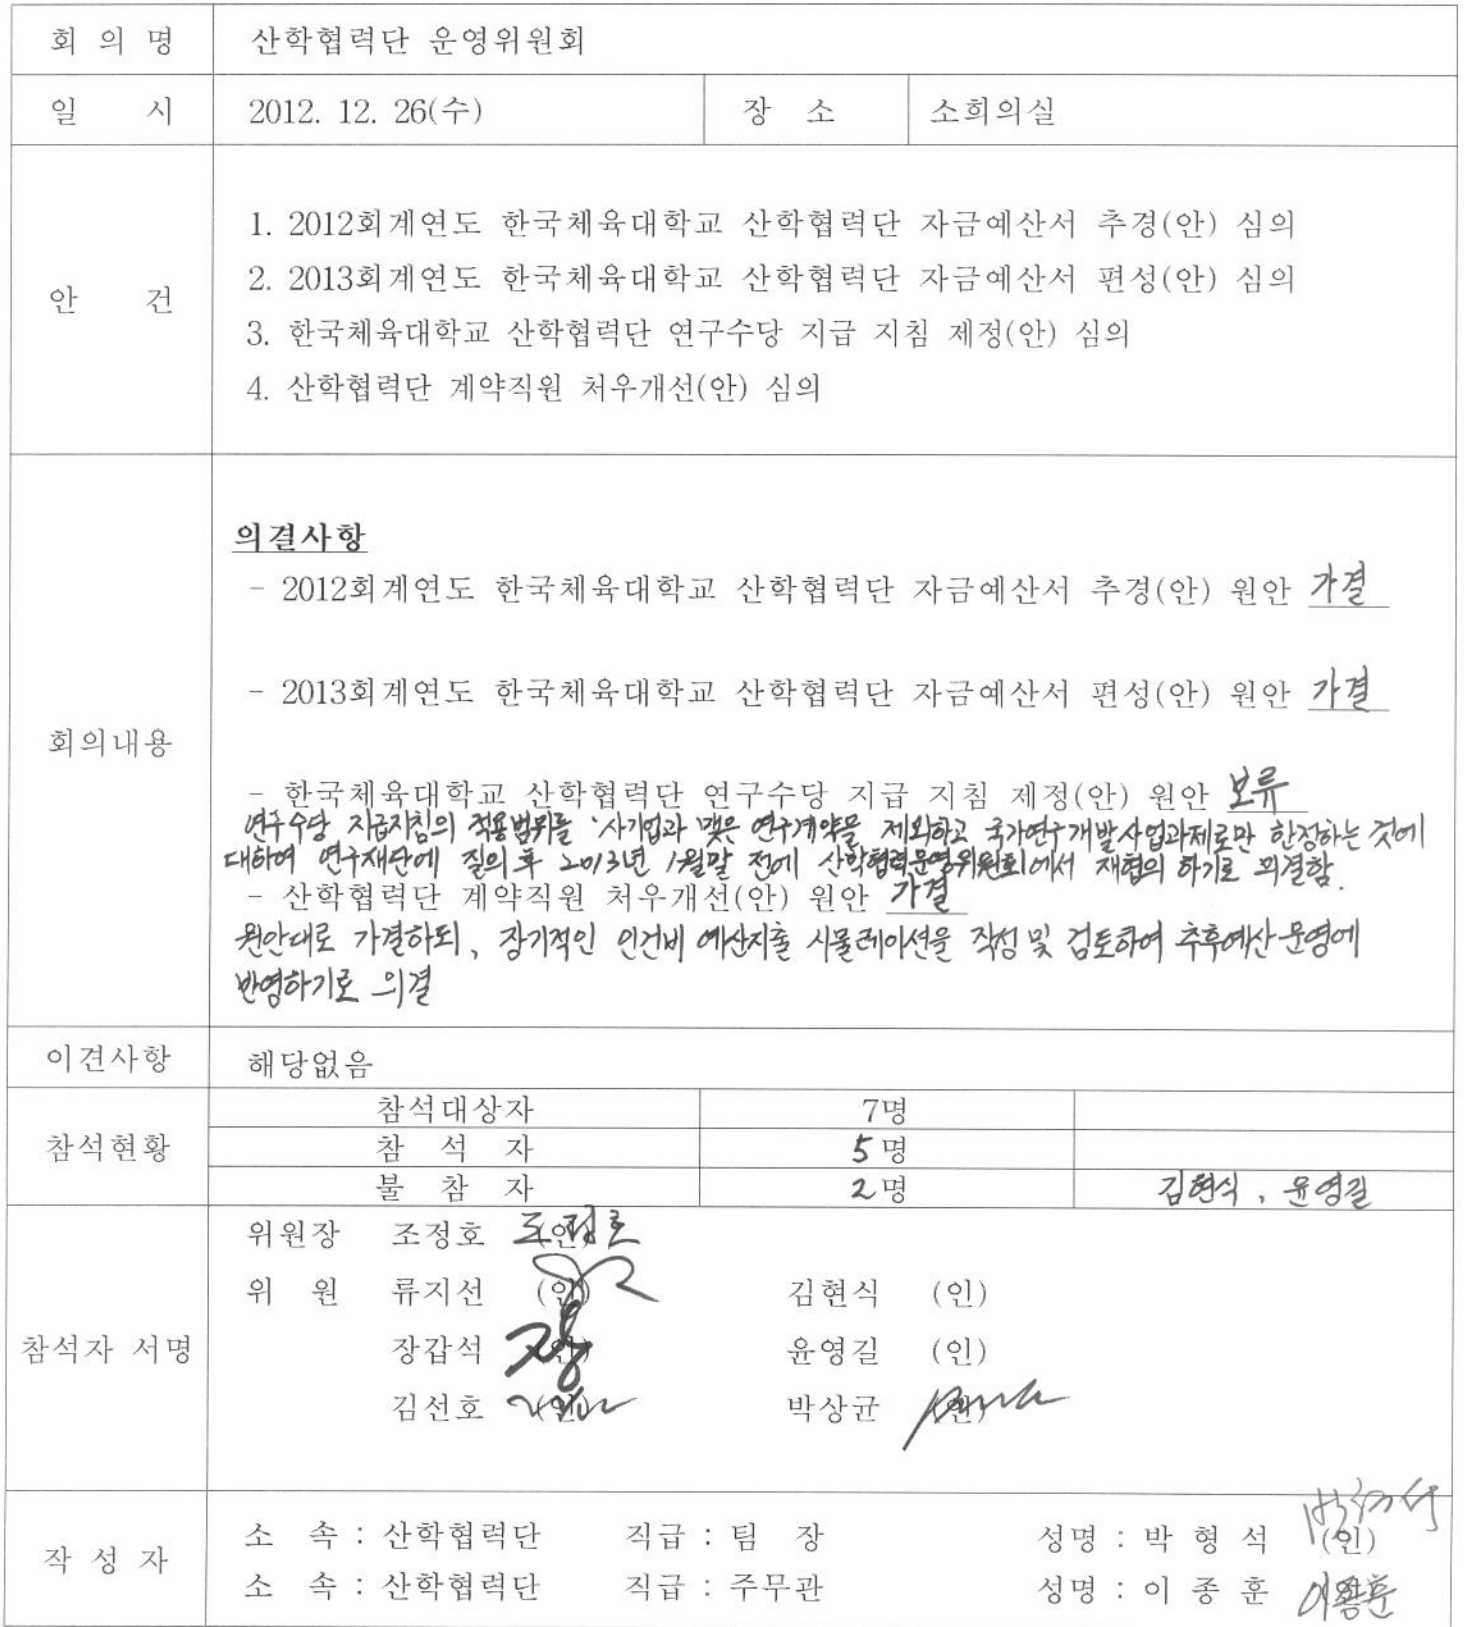 회 의 명 산학협력단 운영위원회
일 시 2012. 12. 26(수) 장 소 소회의실
안 건
1. 2012회계연도 한국체육대학교 산학협력단 자금예산서 추경(안) 심의
2. 2013회계연도 한국체육대학교 산학협력단 자금예산서 편성(안) 심의
3. 한국체육대학교 산학협력단 연구수당 지급 지침 제정(안) 심의
4. 산학협력단 계약직원 처우개선(안) 심의
회의내용
의결사항
- 2012회계연도 한국체육대학교 산학협력단 자금예산서 추경(안) 원안 가결
- 2013회계연도 한국체육대학교 산학협력단 자금예산서 편성(안) 원안 가결
- 한국체육대학교 산학협력단 연구수당 지급 지침 제정(안) 원안 보류
연구수당 지급지침의 적용범위를 '사기업과 맺은 연구계약물 제외하고 국가연구개발사업과제로만 한정하는 것에
대하여 연구재단에 질의 후 2013년 1월말 전에 산학협력운영위원회에서 재협의 하기로 의결함.
- 산학협력단 계약직원 처우개선(안) 원안 가결
원안대로 가결하되, 장기적인 인건비 예산지출 시뮬레이션을 작성 및 검토하여 추후예산 운영에
반영하기로 의결
이견사항 해당없음
참석현황
참석대상자 7명
참 석 자 5명
불 참 자 2명 김현식, 윤영길
참석자 서명
위원장 조정호 (인) 조정호
위 원 류지선 (인) 김현식 (인)
장갑석 (인) 윤영길 (인)
김선호 (인) 박상균 (인)
작 성 자
소 속 : 산학협력단 직급 : 팀 장 성명 : 박 형 석 (인)
소 속 : 산학협력단 직급 : 주무관 성명 : 이 종 훈 이종훈